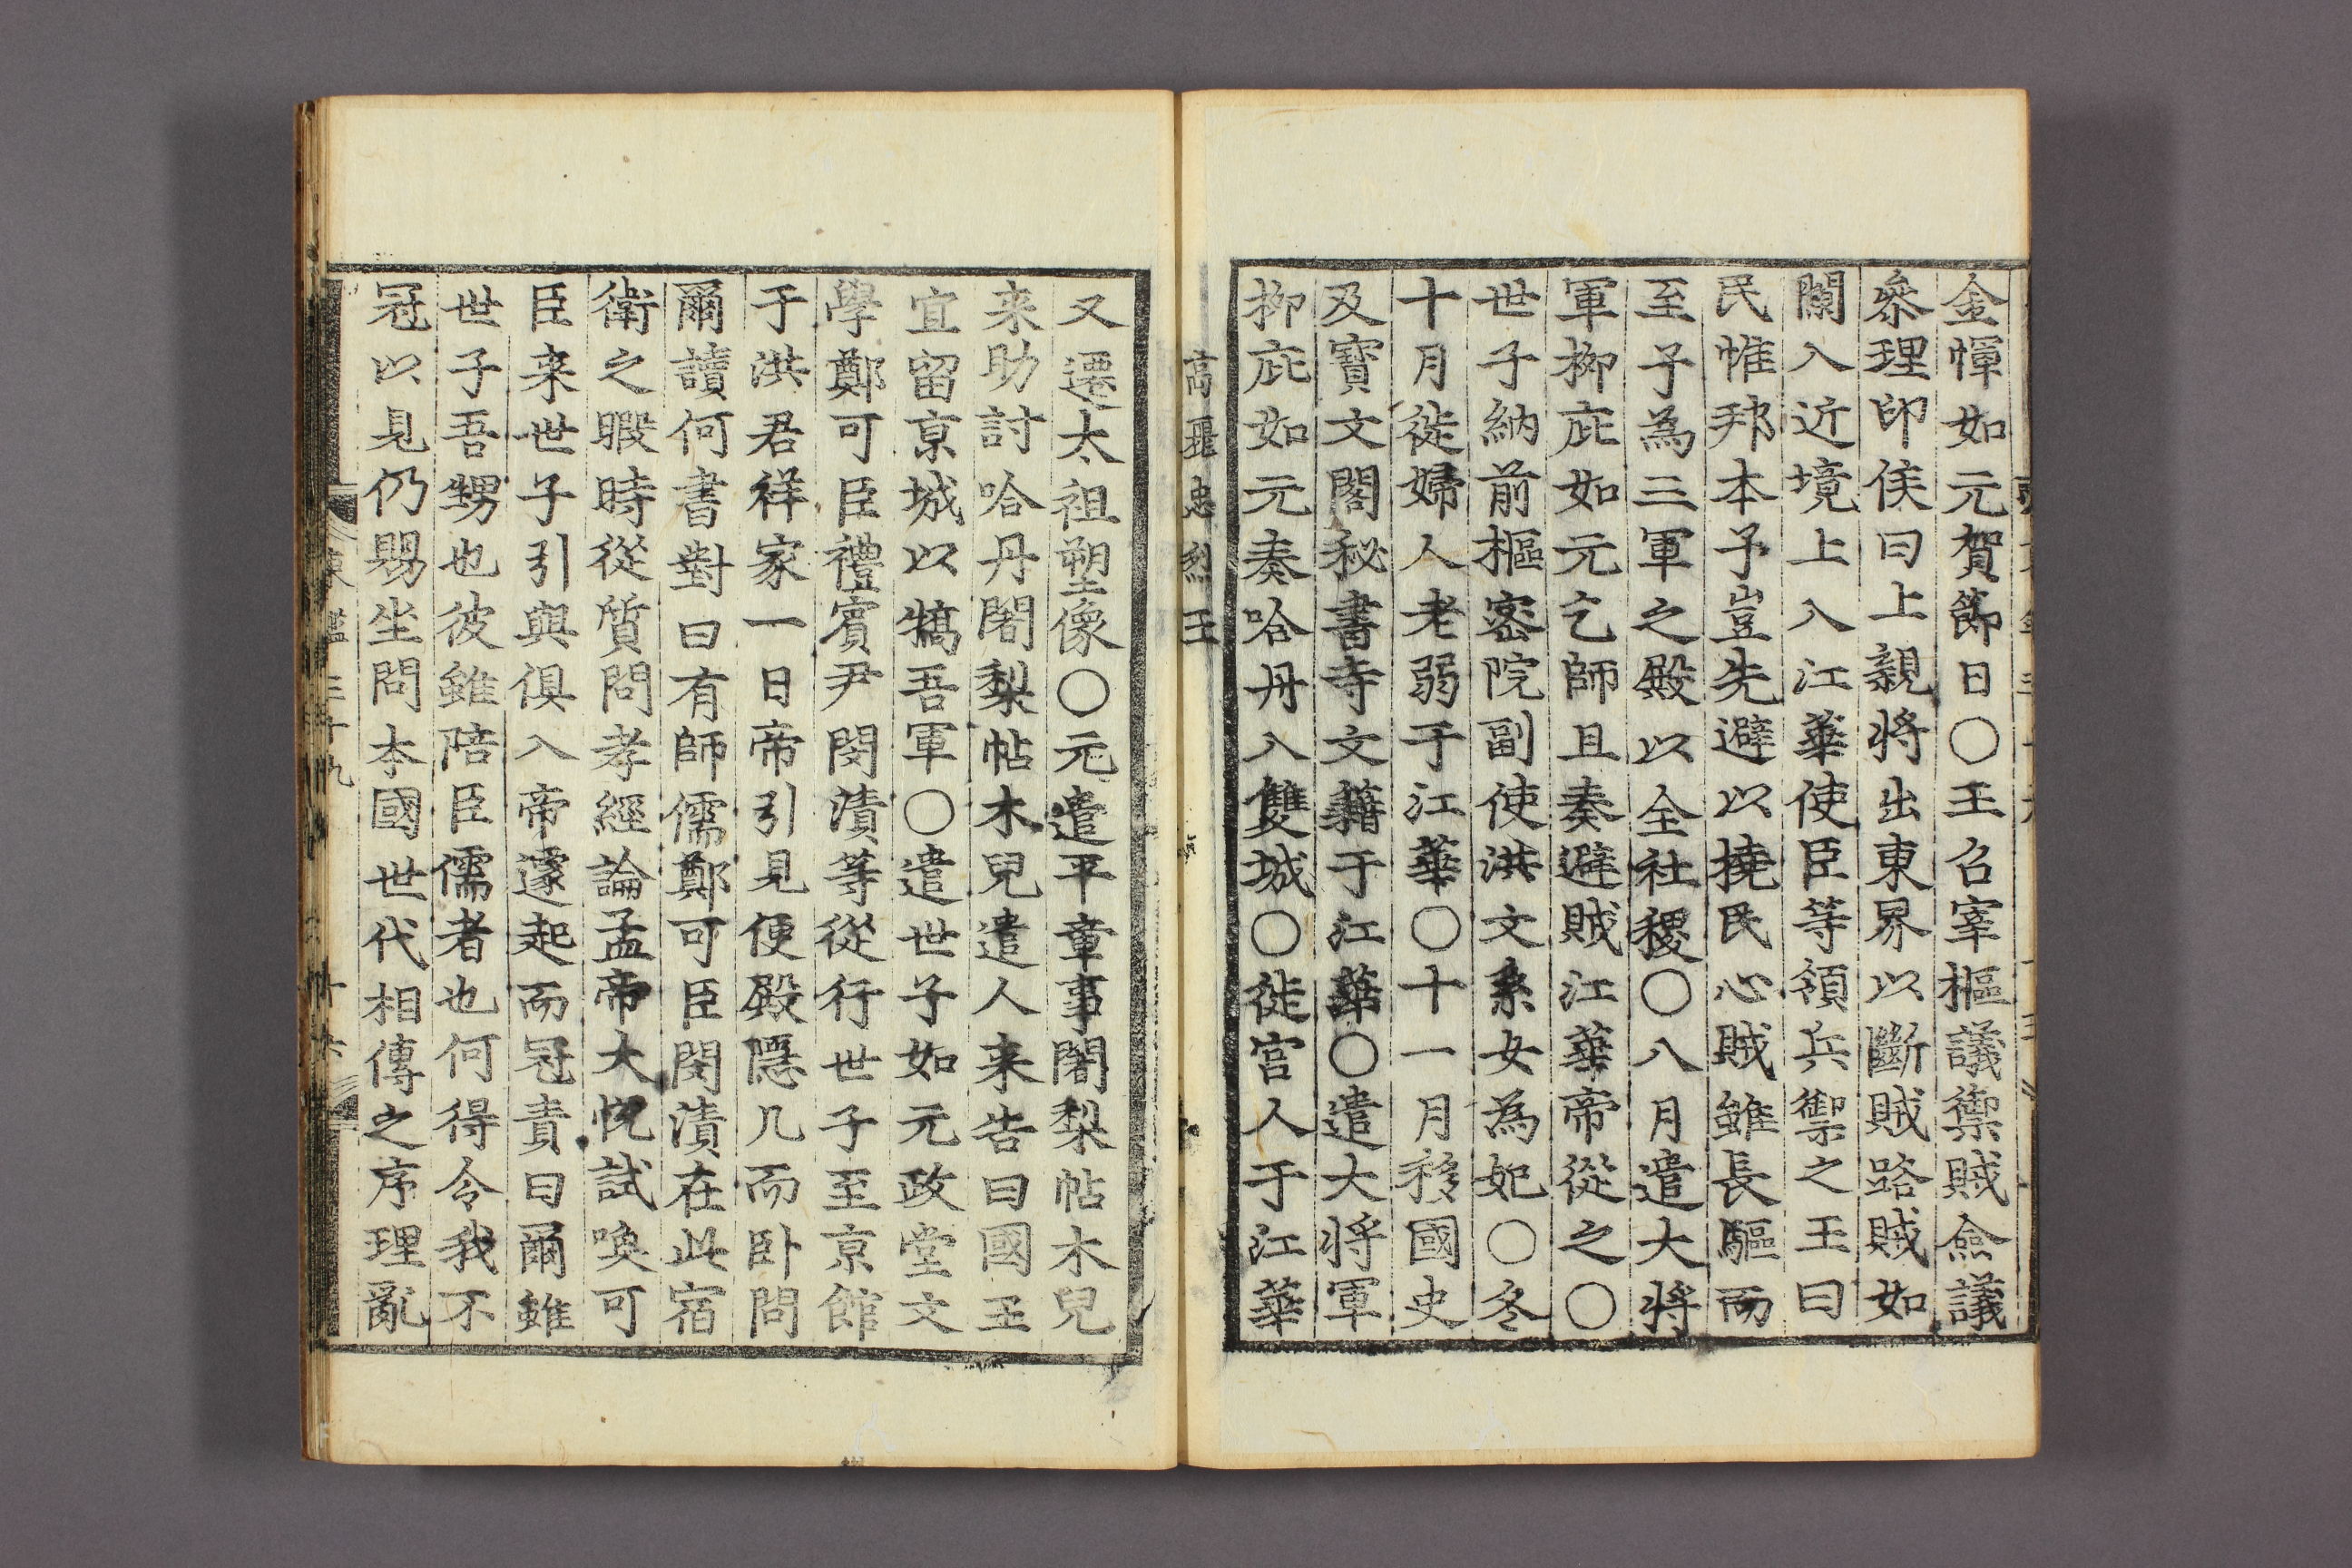 金㥧如元賀節日○王召宰樞議禦賊僉議
叅理印侯曰上親將出東界以斷賊路賊如
闌入近境上入江華使臣等領兵禦之王曰
民惟邦本予豈先避以撓民心賊雖長驅而
至予為三軍之殿以全社稷○八月遣大將
軍柳庇如元乞師且奏避賊江華帝從之○
世子納前樞密院副使洪文系女為妃○冬
十月徙婦人老弱于江華○十一月移國史
及寶文閣秘書寺文籍于江華○遣大將軍
柳庇如元奏哈丹入雙城○徙宮人于江華
高麗忠烈王
又遷太祖塑像○元遣平章事闍梨帖木兒
来助討哈丹闍梨帖木兒遣人来告曰國王
宜留京城以犒吾軍○遣世子如元政堂文
學鄭可臣禮賓尹閔漬等從行世子至京館
于洪君祥家一日帝引見便殿隱几而卧問
爾讀何書對曰有師儒鄭可臣閔漬在此宿
衛之暇時從質問孝經論孟帝大悅試喚可
臣来世子引與俱入帝遽起而冠責曰爾雖
世子吾甥也彼雖陪臣儒者也何得令我不
冠以見仍賜坐問本國世代相傳之序理亂
三十九